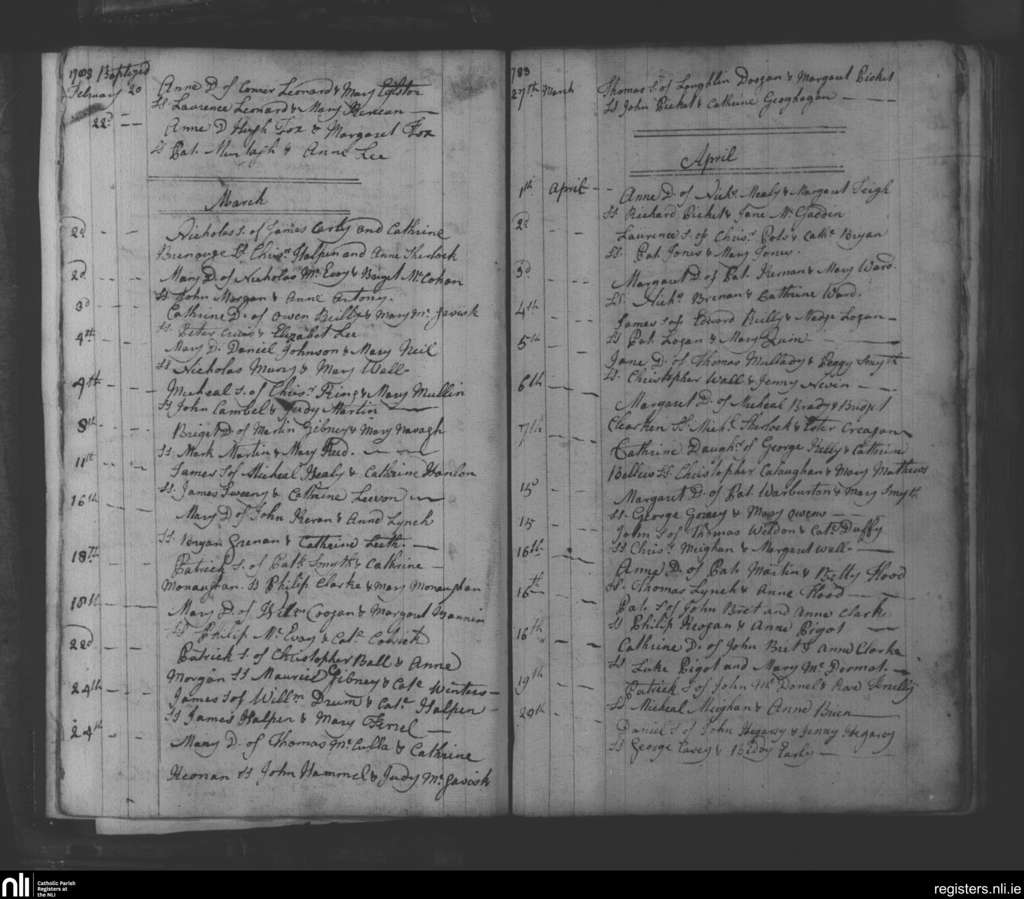 1783 Baptized
February 20 Anne D of Conner Leonard & Mary
Ss Laurence Leonard & Mary Henean
22d Anne D Hugh Fox & Margaret Fox
Ss Pat. & Anne Lee
March
2d Nicholas s. of James Carty and Cathrine
Ss Chrisr. Halpen and Anne Sherlock
2d Mary D. of Nicholas Mc. Evoy & Briget Mc. Cohan
Ss John Morgan & Anne Antony.
3d Cathrine D. of Owen Reilly & Mary Mc.
Ss Peter & Elizabet Lee
4th Mary D. Daniel Johnson & Mary Neil
Ss Nicholas & Mary Wall
4th Micheal s. of Chrisr. & Mary Mullin
Ss John Cambel & Judy Martin
8th Briget D of Martin Gibney & Mary Navagh
Ss. Mark Martin & Mary
11th James s of Micheal Healy & Cathrine Hanlon
Ss. James Sweeny & Cathrine
16th Mary D. of John & Anne Lynch
Ss. Bryan & Cathrine
18th Patrick s. of Patk. Smyth & Cathrine
Monaughan. Ss Philip Clarke & Mary Monaughan
18th Mary D. of Willm. Coogan & Margaret
Ss Philip Mc. Evoy & Cate. Cosick
22d Patrick s. of Christopher Ball & Anne
Morgan Ss Gibney & Cate Winters
24th James s of Willm. Drum & Cate. Halpen
Ss James Halpen & Mary
24th Mary D. of Thomas Mc. Culla & Cathrine
Heenan Ss John Hammel & Judy Mc.
1783
27th March Thomas s. of Loughlin & Margaret Picket
Ss John Picket & Cathrine Geoghagan
April
1th April Anne D. of Nichs. Mealy & Margaret Leigh
Ss Richard Picket & Jane Mc. Gadden
2d Laurence s. of Chrisr. & Cathe. Bryan
Ss. Pat. Jones & Mary Jones.
3d Margaret D. of Pat. Kernan & Mary Ward
Ss. Nichs. Brenan & Cathrine Ward.
4th James s. of Edward Reilly & Madge Logan
Ss Pat. Logan & Mary Quin
5th Jane D. of Thomas Mullady & Peggy Smyth
Ss. Christopher Wall & Jenny Nevin
6th Margaret D. of Micheal Brady & Briget
Ss. Michl. Sherlock & Ester Creagan
7th Cathrine Daughr. of George Kelly & Cathrine
Bellew Ss Christopher & Mary Mathews
15 Margaret D. of Pat. Warburton & Mary Smyth
Ss. George & Mary Owens
15 John s of Thomas Weldon & Cate. Duffy
Ss Chrisr. Meighan & Margaret Wall
16th Anne D. of Pat. Martin & Betty Flood
Ss. Thomas Lynch & Anne Flood
16th Pat. s of John Bret and Anne Clark
Ss Philip Keogan & Anne Pigot
16th Cathrine D. of John Bret & Anne Clarke
Ss. Luke Pigot and Mary Mc. Dermot
19th Patrick s of John Mc. Donel & Rose
Ss. Micheal Meighan & Anne
20th Daniel s of John Hegarty & Jenny Hegarty
Ss George & Biddy Early
nli
Catholic Parish
Registers at
the NLI
registers.nli.ie